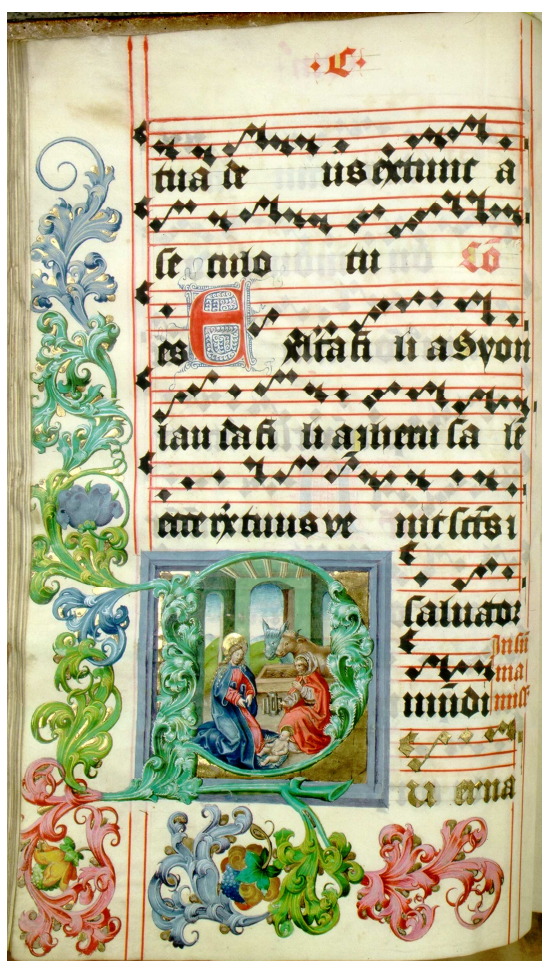 ·C·
tua de us extunc a
se culo tu Cō
es Exulta fi li a Syon
lau da fi li a iheru sa lē
ecce rex tuus ve nit scūs ⁊
saluator
mūdi
In sūma miss
P u er na